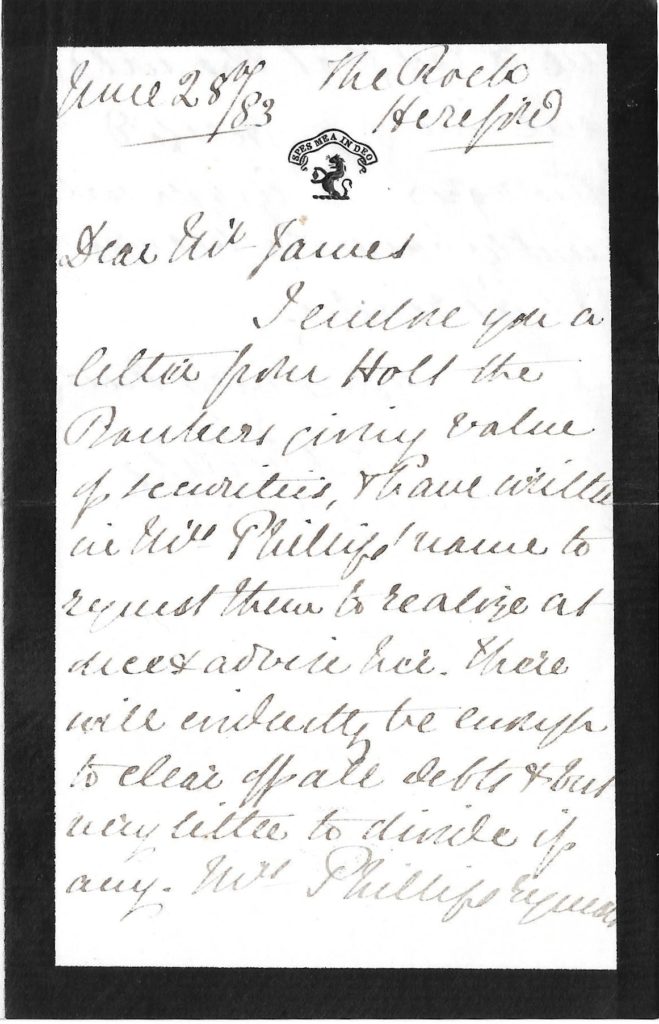 June 28th /83
The Rock
Hereford
SPES MEA IN DEO
Dear Mr James
I enclose you a
letter from Holt the
Bankers giving value
of securities, & have written
in Mrs Phillips' name to
request them to realize at
once & advise her. There
will evidently be enough
to clear off all debts & but
very little to divide if
any. Mrs Phillips